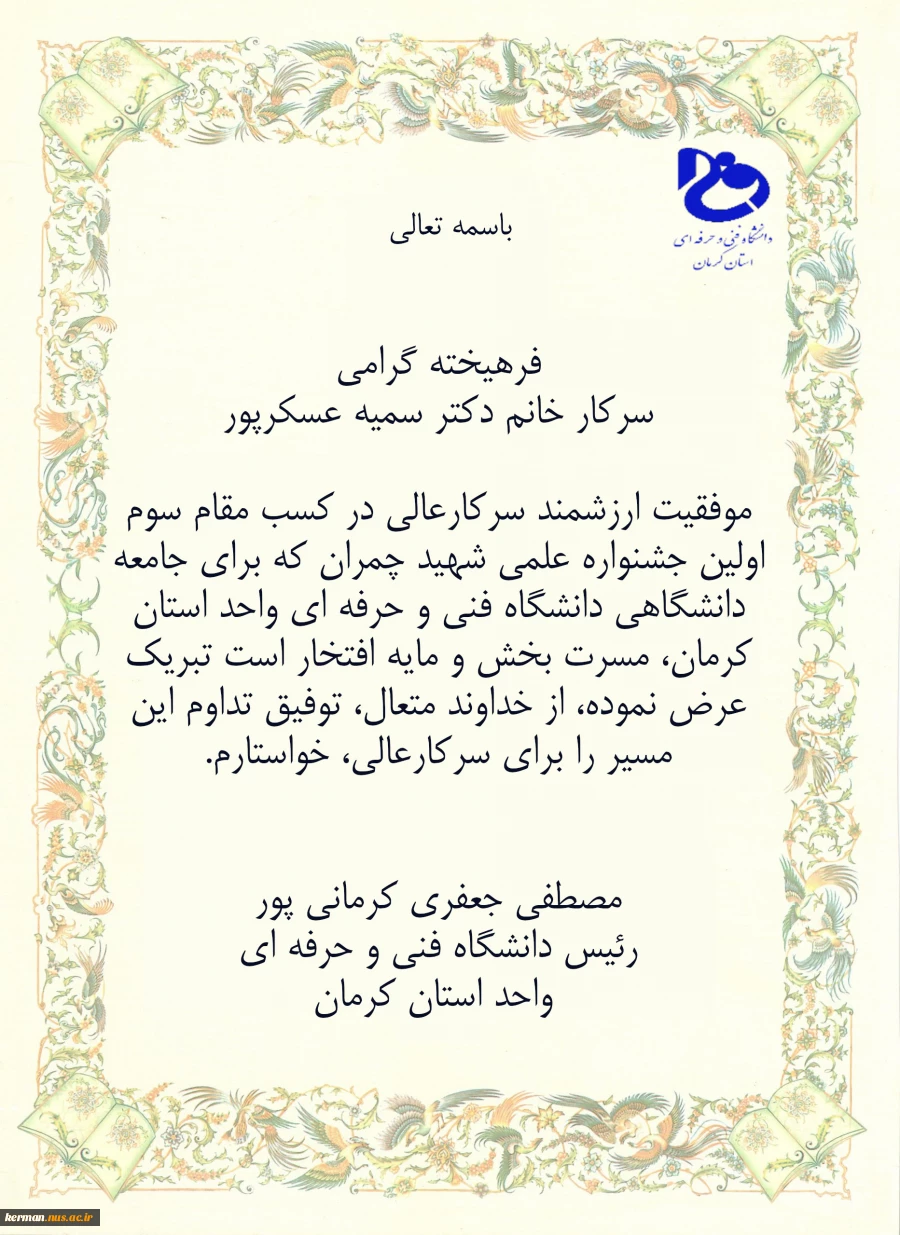 باسمه تعالی
دانشگاه فنی و حرفه ای
استان کرمان
فرهیخته گرامی
سرکار خانم دکتر سمیه عسکرپور
موفقیت ارزشمند سرکارعالی در کسب مقام سوم
اولین جشنواره علمی شهید چمران که برای جامعه
دانشگاهی دانشگاه فنی و حرفه ای واحد استان
کرمان، مسرت بخش و مایه افتخار است تبریک
عرض نموده، از خداوند متعال، توفیق تداوم این
مسیر را برای سرکارعالی، خواستارم.
مصطفی جعفری کرمانی پور
رئیس دانشگاه فنی و حرفه ای
واحد استان کرمان
kerman.nus.ac.ir